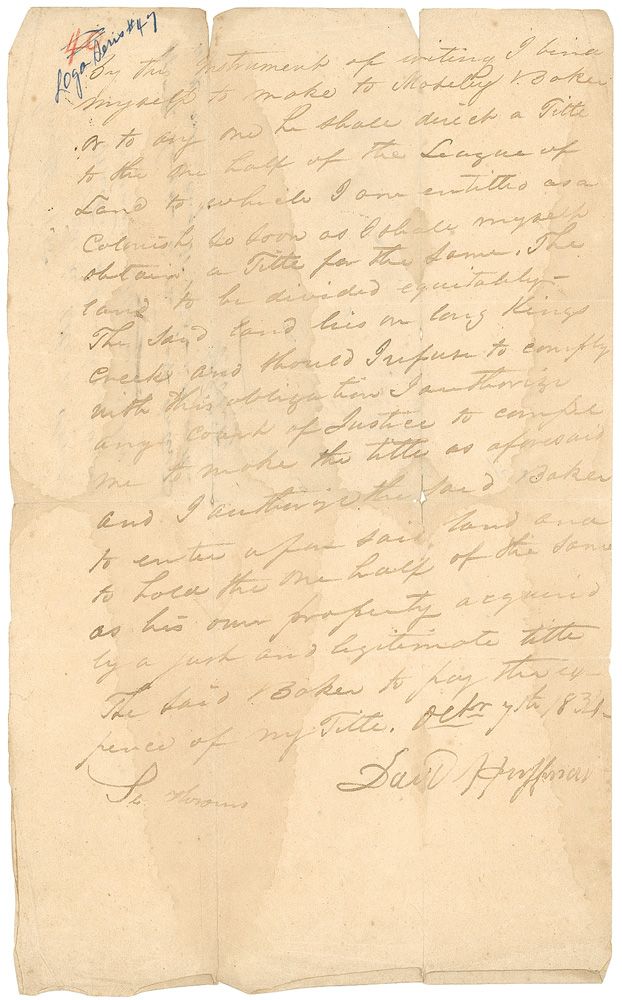 46
Loga Series #47
By this Instrument of writing I bind
myself to make to Moseley Baker
or to any one he shall direct a Title
to the one half of the League of
Land to which I am entitled as a
Colonist, so soon as I shall myself
obtain a Title for the same. The
land to be divided equitably—
The said land lies on long Kings
Creek and should I refuse to comply
with this obligation I authorize
any Court of Justice to compel
me to make the title as aforesaid
and I authorize the said Baker
to enter upon said land and
to hold the one half of the same
as his own property acquired
by a just and legitimate title
The said Baker to pay the ex-
pence of my Title. Octbr 7th 183
David Huffman